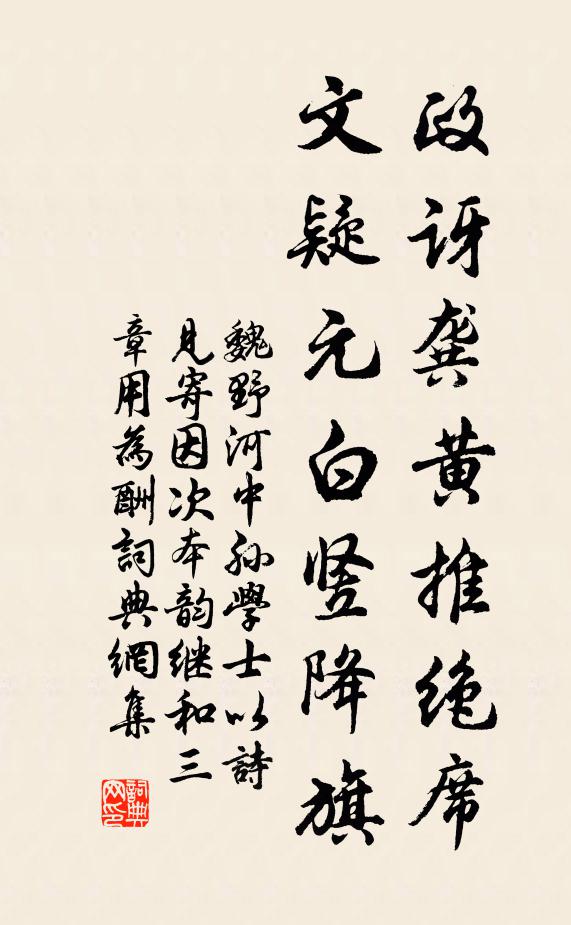 政讶龚黄推绝席
文疑元白竖降旗
魏野河中孙學士以詩
見寄因次本韵继和三
章用為酬詞典網集
詞典网印